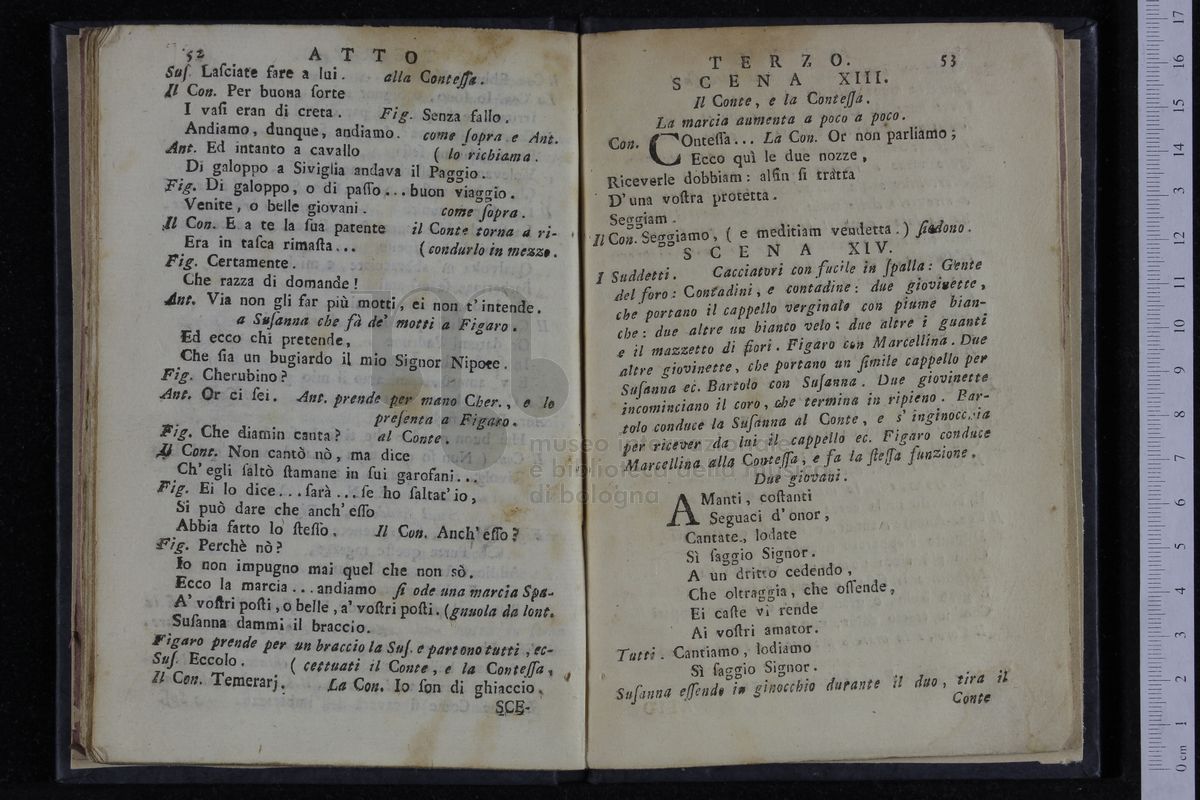 52 ATTO
Suſ. Laſciate fare a lui. alla Conteſſa.
Il Con. Per buona ſorte
I vaſi eran di creta. Fig. Senza fallo.
Andiamo, dunque, andiamo. come ſopra e Ant.
Ant. Ed intanto a cavallo ( lo richiama.
Di galoppo a Siviglia andava il Paggio.
Fig. Di galoppo, o di paſſo... buon viaggio.
Venite, o belle giovani. come ſopra.
Il Con. E a te la ſua patente il Conte torna a ri-
Era in taſca rimaſta... (condurlo in mezzo.
Fig. Certamente.
Che razza di domande!
Ant. Via non gli far più motti, ei non t'intende.
a Suſanna che fà de' motti a Figaro.
Ed ecco chi pretende,
Che ſia un bugiardo il mio Signor Nipote.
Fig. Cherubino?
Ant. Or ci ſei. Ant. prende per mano Cher., e lo
preſenta a Figaro.
Fig. Che diamin canta? al Conte.
Il Cont. Non cantò nò, ma dice
Ch'egli ſaltò ſtamane in ſui garofani...
Fig. Ei lo dice... ſarà... ſe ho ſaltat'io,
Si può dare che anch'eſſo
Abbia fatto lo ſteſſo. Il Con. Anch'eſſo?
Fig. Perchè nò?
Io non impugno mai quel che non sò.
Ecco la marcia... andiamo ſi ode una marcia Spa-
A' voſtri poſti, o belle, a' voſtri poſti. (gnuola da lont.
Suſanna dammi il braccio.
Figaro prende per un braccio la Suſ. e partono tutti, ec-
Suſ. Eccolo. ( cettuati il Conte, e la Conteſſa,
Il Con. Temerarj. La Con. Io ſon di ghiaccio.
SCE-
TERZO. 53
SCENA XIII.
Il Conte, e la Conteſſa.
La marcia aumenta a poco a poco.
Con. COnteſſa... La Con. Or non parliamo;
Ecco quì le due nozze,
Riceverle dobbiam: alfin ſi tratta
D'una voſtra protetta.
Seggiam.
Il Con. Seggiamo, ( e meditiam vendetta.) ſiedono.
SCENA XIV.
I Suddetti. Cacciatori con fucile in ſpalla: Gente
del foro: Contadini, e contadine: due giovinette,
che portano il cappello verginale con piume bian-
che: due altre un bianco velo: due altre i guanti
e il mazzetto di fiori. Figaro con Marcellina. Due
altre giovinette, che portano un ſimile cappello per
Suſanna ec. Bartolo con Suſanna. Due giovinette
incominciano il coro, che termina in ripieno. Bar-
tolo conduce la Suſanna al Conte, e s'inginocchia
per ricever da lui il cappello ec. Figaro conduce
Marcellina alla Conteſſa, e fa la ſteſſa funzione.
Due giovani.
AManti, coſtanti
Seguaci d'onor,
Cantate, lodate
Sì ſaggio Signor.
A un dritto cedendo,
Che oltraggia, che offende,
Ei caſte vi rende
Ai voſtri amator.
Tutti. Cantiamo, lodiamo
Sì ſaggio Signor.
Suſanna eſſendo in ginocchio durante il duo, tira il
Conte
museo internazionale
e biblioteca della musica
di bologna
0 cm 1 2 3 4 5 6 7 8 9 10 11 12 13 14 15 16 17